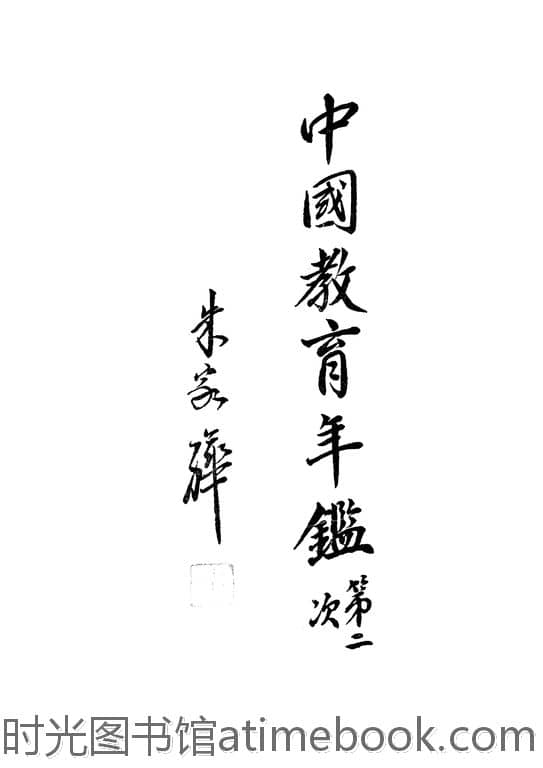 中國教育年鑑
第二
次
朱家驊
时光图书馆atimebook.com